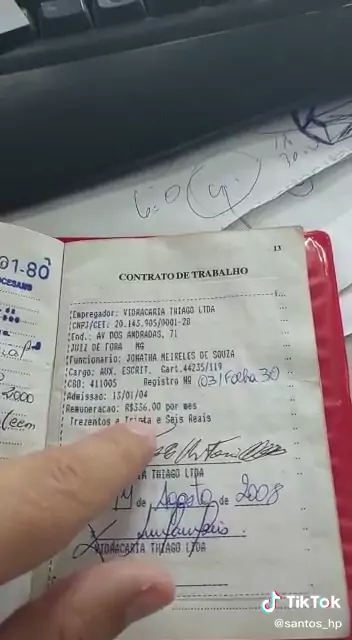 01-80
13
CONTRATO DE TRABALHO
Empregador: VIDRACARIA THIAGO LTDA
CNPJ/CEI: 20.143.905/0001-28
End.: AV DOS ANDRADAS, 71
JUIZ DE FORA MG
Funcionario: JONATHA MEIRELES DE SOUZA
Cargo: AUX. ESCRIT. Cart.44235/119
CBO: 411005 Registro Nº 03/Folha 30
Admissao: 13/01/04
Remuneracao: R$336,00 por mes
Trezentos e Trinta e Seis Reais
THIAGO LTDA
14 de Agosto de 2008
VIDRACARIA THIAGO LTDA
TikTok
@santos_hp